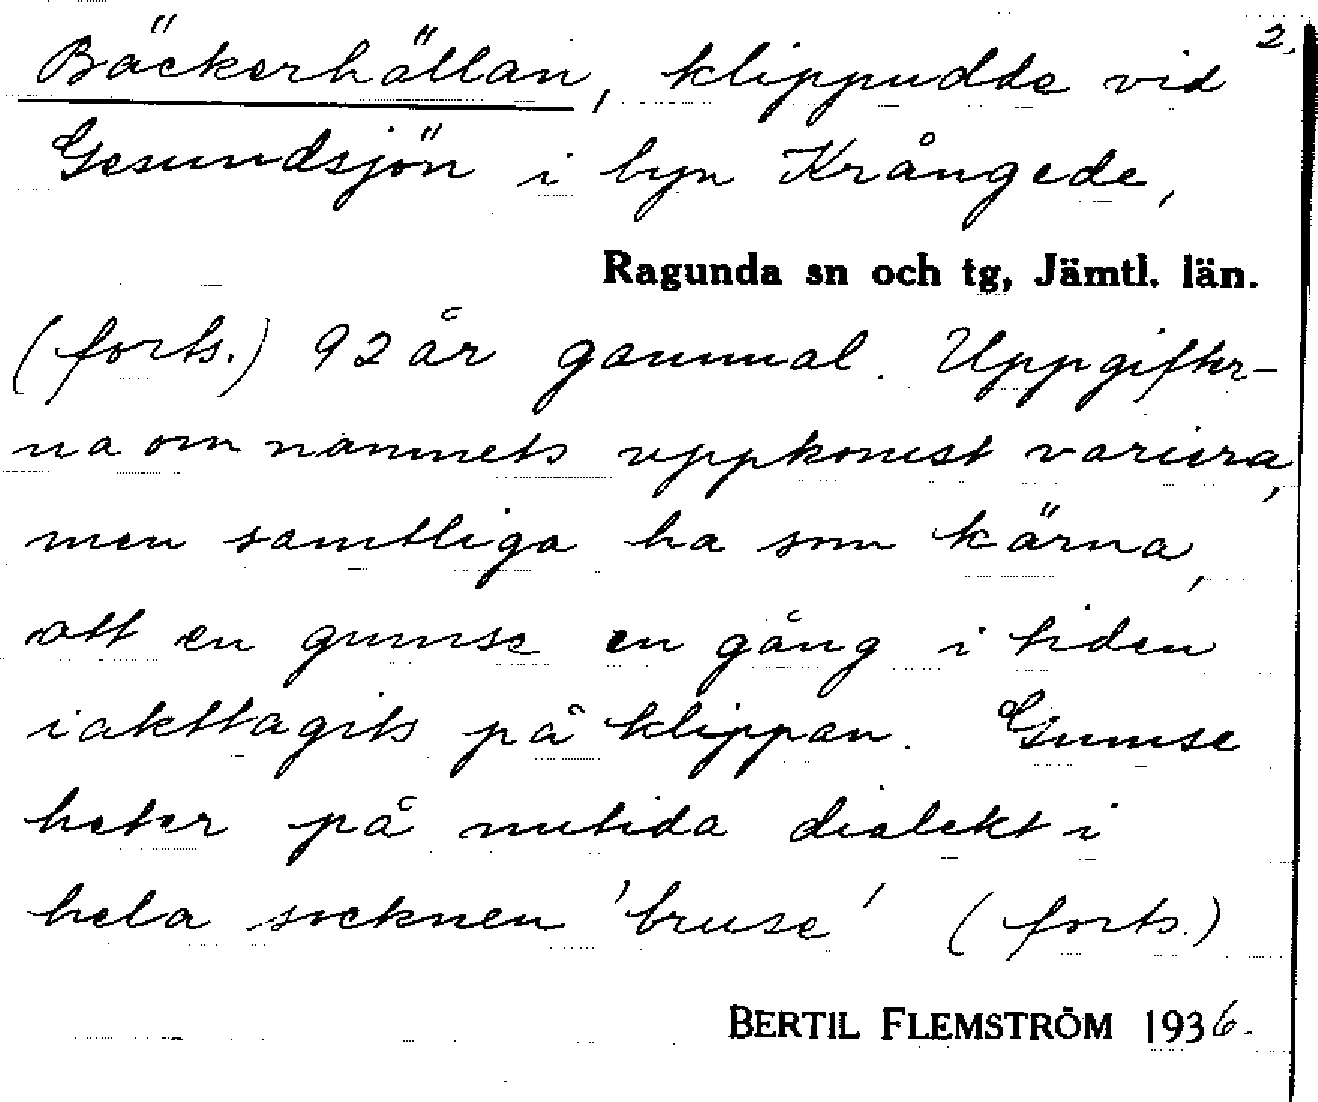 2.
Bäckerhällan, klippudde vid
Gesundsjön i byn Krångede,
Ragunda sn och tg, Jämtl. län.
(forts.) 92 år gammal. Uppgifter-
na om namnets uppkomst variera,
men samtliga ha som kärna,
att en gumse en gång i tiden
iakttagits på klippan. Gumse
heter på nutida dialekt i
hela socknen 'bruse' (forts.)
BERTIL FLEMSTRÖM 1936.